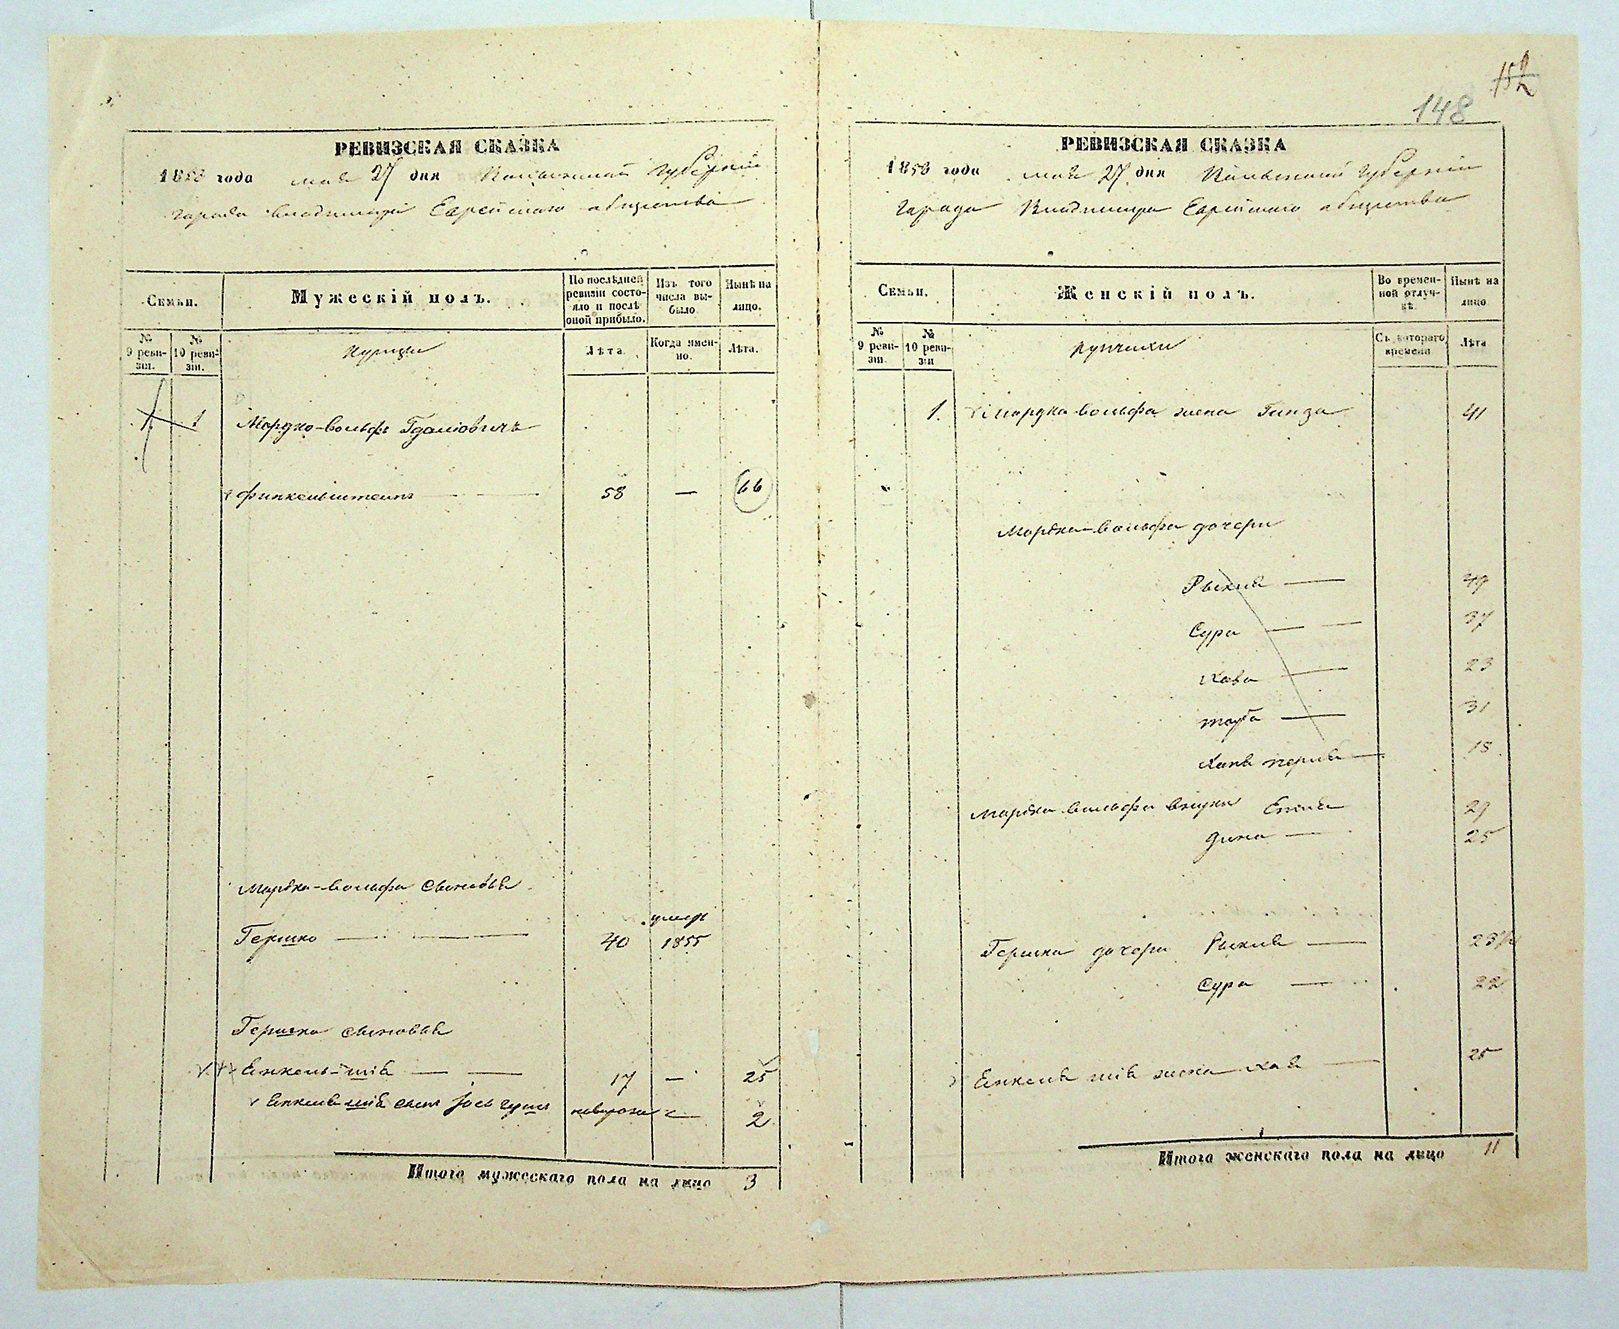 152
148
РЕВИЗСКАЯ СКАЗКА
1858 года мая 27 дня Волынской Губернiи
города Владимира Еврейского общества
Семьи.
Мужескiй полъ.
По послѣдней ревизiи состояло и послѣ оной прибыло.
Изъ того числа выбыло.
Нынѣ на лицо.
№ 9 ревизiи.
№ 10 ревизiи.
Купцы
Лѣта.
Когда именно.
Лѣта.
1 1 Мордко-Вольфъ Гдалiовичъ
Финкельштейнъ 58 — 66
Мордка-Вольфа сыновья
Гершко 40 умеръ 1855
Гершка сыновья
Енкель-шiя 17 — 25
Енкеля шiя сынъ 2
Итого мужескаго пола на лицо 3
РЕВИЗСКАЯ СКАЗКА
1858 года мая 27 дня Волынской Губернiи
города Владимира Еврейского общества
Семьи.
Женскiй полъ.
Во временной отлучкѣ.
Нынѣ на лицо
№ 9 ревизiи.
№ 10 ревизiи
Купчихи
Съ котораго времени
Лѣта
1. Мордка-Вольфа жена 41
Мордка-Вольфа дочери
Рыкля
Сура 37
Хава 23
31
Хана Перля
Мордка-Вольфа внуки 29
Дина 25
Гершка дочери Рыкля
Сура 22
Енкеля шiя жена Хая 25
Итого женскаго пола на лицо 11